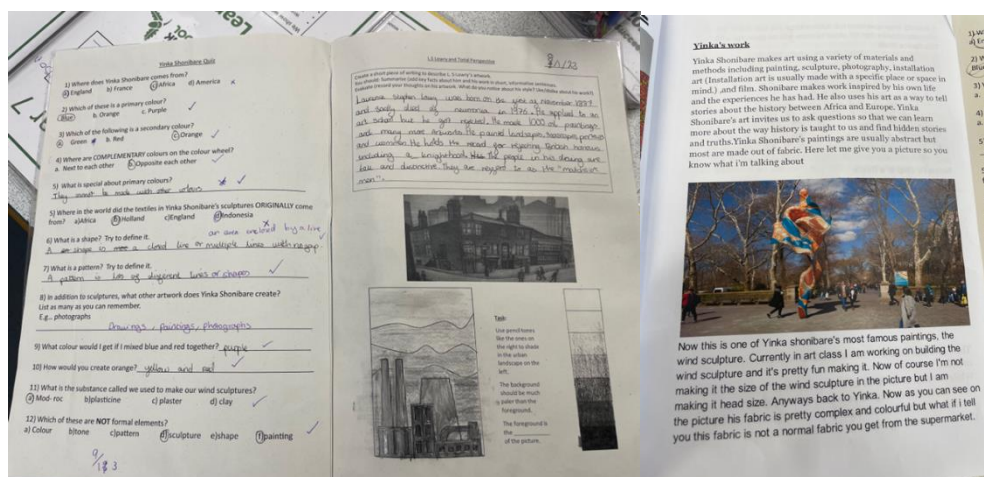 Yinka Shonibare Quiz
1) Where does Yinka Shonibare comes from?
a) England b) France c) Africa d) America x
2) Which of these is a primary colour?
Blue b. Orange c. Purple
3) Which of the following is a secondary colour?
a. Green b. Red c) Orange
4) Where are COMPLEMENTARY colours on the colour wheel?
a. Next to each other b) Opposite each other
5) What is special about primary colours?
They cannot be made with other colours
5) Where in the world did the textiles in Yinka Shonibare's sculptures ORIGINALLY come
from? a)Africa b)Holland c)England d)Indonesia
an area enclosed by a line
6) What is a shape? Try to define it.
A shape is a closed line or multiple lines with no gap
7) What is a pattern? Try to define it.
A pattern is lots of different lines or shapes
8) In addition to sculptures, what other artwork does Yinka Shonibare create?
List as many as you can remember.
E.g.. photographs
Drawings, paintings, photographs
9) What colour would I get if I mixed blue and red together? purple
10) How would you create orange? yellow and red
11) What is the substance called we used to make our wind sculptures?
a) Mod- roc b)plasticine c) plaster d) clay
12) Which of these are NOT formal elements?
a) Colour b)tone c)pattern d)sculpture e)shape f)painting
LS Lowry and Tonal Perspective
Create a short piece of writing to describe L.S Lowry's artwork.
Laurence Stephen Lowry was born on the year of November 1887
and sadly died of neumonia in 1976. He applied to an
art school but he got rejected. He made 1000 of paintings
and many more Artworks. He painted landscapes,
He holds the record for rejecting British honours
including a knighthood. The people in his drawing are
tall and distinctive. They are referred to as the "matchstick
men".
Task:
Use pencil tones
like the ones on
the right to shade
in the urban
landscape on the
left.
The background
should be much
paler than the
foreground.
The foreground is
the
of the picture.
Yinka's work
Yinka Shonibare makes art using a variety of materials and
methods including painting, sculpture, photography, installation
art (Installation art is usually made with a specific place or space in
mind.) ,and film. Shonibare makes work inspired by his own life
and the experiences he has had. He also uses art as a way to tell
stories about the history between Africa and Europe. Yinka
Shonibare's art invites us to ask questions so that we can learn
more about the way history is taught to us and find hidden stories
and truths.Yinka Shonibare's paintings are usually abstract but
most are made out of fabric. Here let me give you a picture so you
know what i'm talking about
Now this is one of Yinka shonibare's most famous paintings, the
wind sculpture. Currently in art class I am working on building the
wind sculpture and it's pretty fun making it. Now of course I'm not
making it the size of the wind sculpture in the picture but I am
making it head size. Anyways back to Yinka. Now as you can see on
the picture his fabric is pretty complex and colourful but what if i tell
you this fabric is not a normal fabric you get from the supermarket.